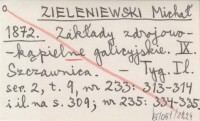 ZIELENIEWSKI Michał
1872. Zakłady zdrojowo-
-kąpielne galicyjskie. IX.
Szczawnica. - Tyg. Il.
ser. 2, t. 9, nr 233: 313-314
i il. na s. 309; nr 235: 334-335.